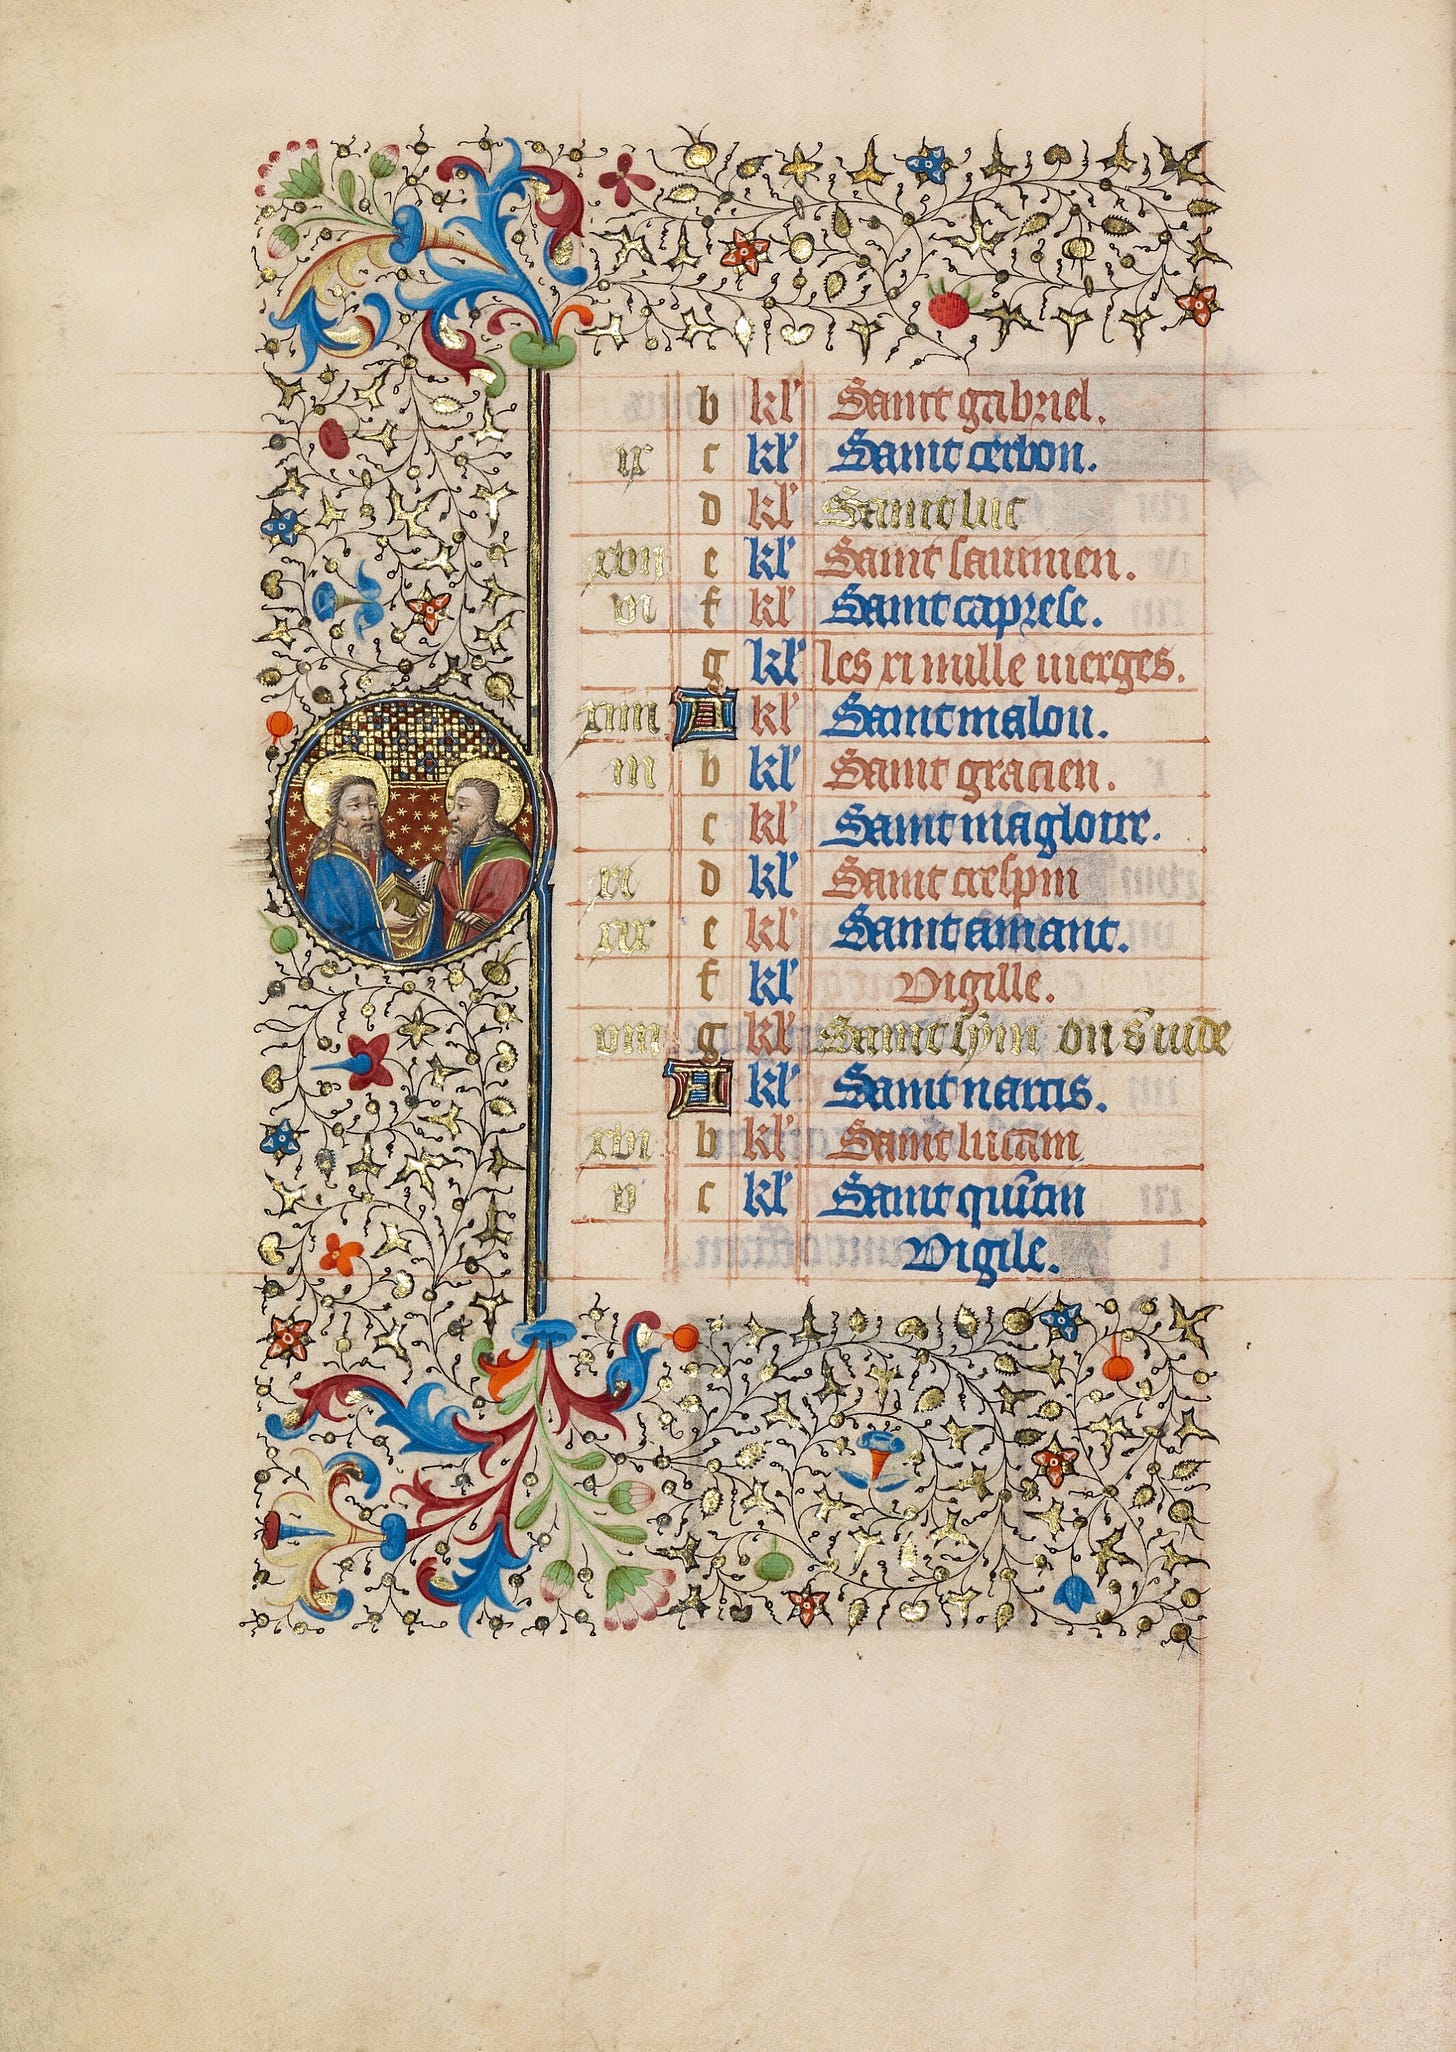 b kl' Saint gabriel.
ix c kl' Saint cerbon.
d kl' Saint luc
xvii e kl' Saint sauinien.
vi f kl' Saint caprese.
g kl' les xi mille uierges.
xiiii A kl' Saint malou.
iii b kl' Saint gracien.
c kl' Saint magloire.
xi d kl' Saint crespin
xix e kl' Saint amant.
f kl' Vigille.
viii g kl' Saint sym on s iude
A kl' Saint narcis.
xvi b kl' Saint lucain
v c kl' Saint quītin
Vigile.